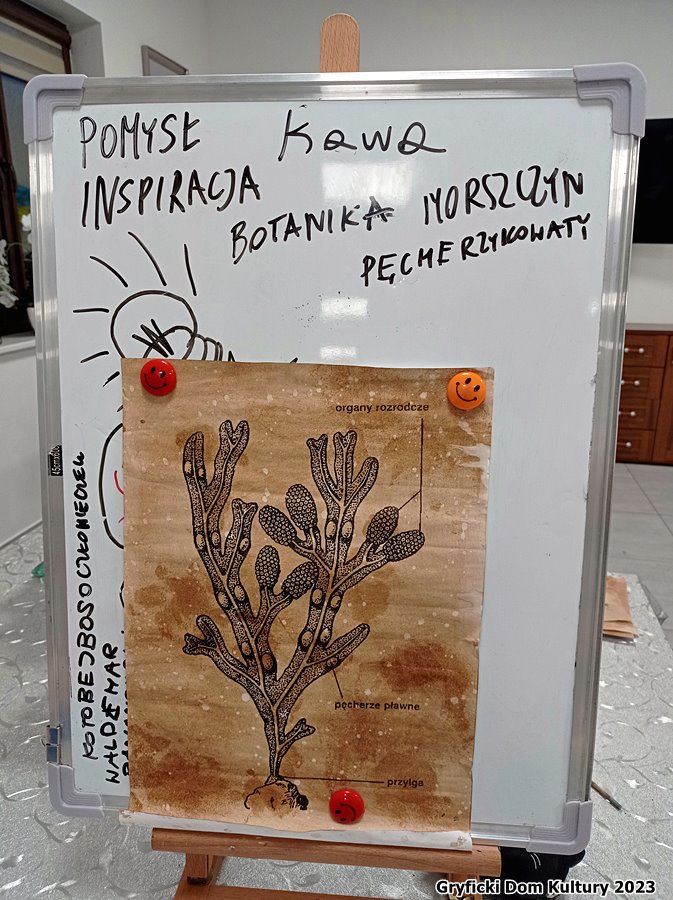 POMYSŁ Kawa
INSPIRACJA
BOTANIKA MORSZCZYN
PĘCHERZYKOWATY
organy rozrodcze
pęcherze pławne
przylga
WALDEMAR
Gryficki Dom Kultury 2023